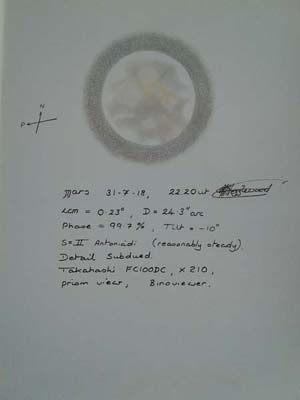 N
P
Mars 31-7-18, 22.20ut
LCM = 0.23°, D = 24.3" arc
Phase = 99.7%, Tilt = -10°
S=II Antoniadi (reasonably steady).
Detail Subdued.
Takahashi FC100DC, x 210,
prism view, Binoviewer.